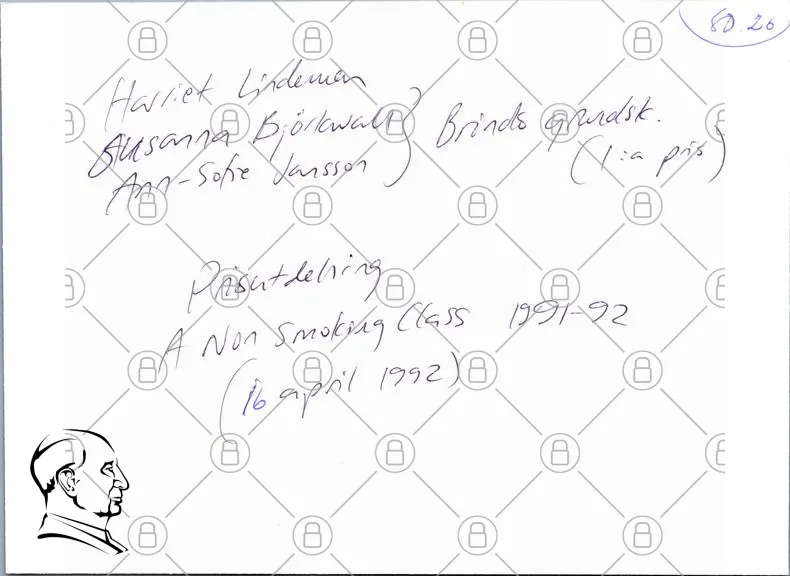 80.26
Harriet Lindeman
Susanna Björkwall
Ann-Sofie Jansson
Brinds grundsk.
(1:a pris)
Prisutdelning
A Non Smoking Class 1991-92
(16 april 1992)